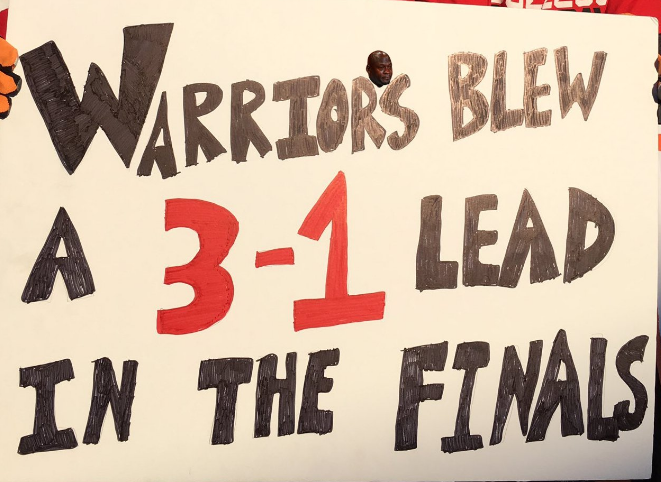 WARRIORS BLEW
A 3-1 LEAD
IN THE FINALS